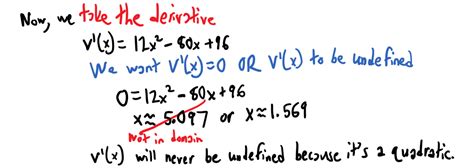 Now, we take the derivative
V'(x) = 12x² - 80x + 96
We want V'(x) = 0 OR V'(x) to be undefined
0 = 12x² - 80x + 96
x ≈ 5.097 or x ≈ 1.569
Not in domain
V'(x) will never be undefined because it's a quadratic.